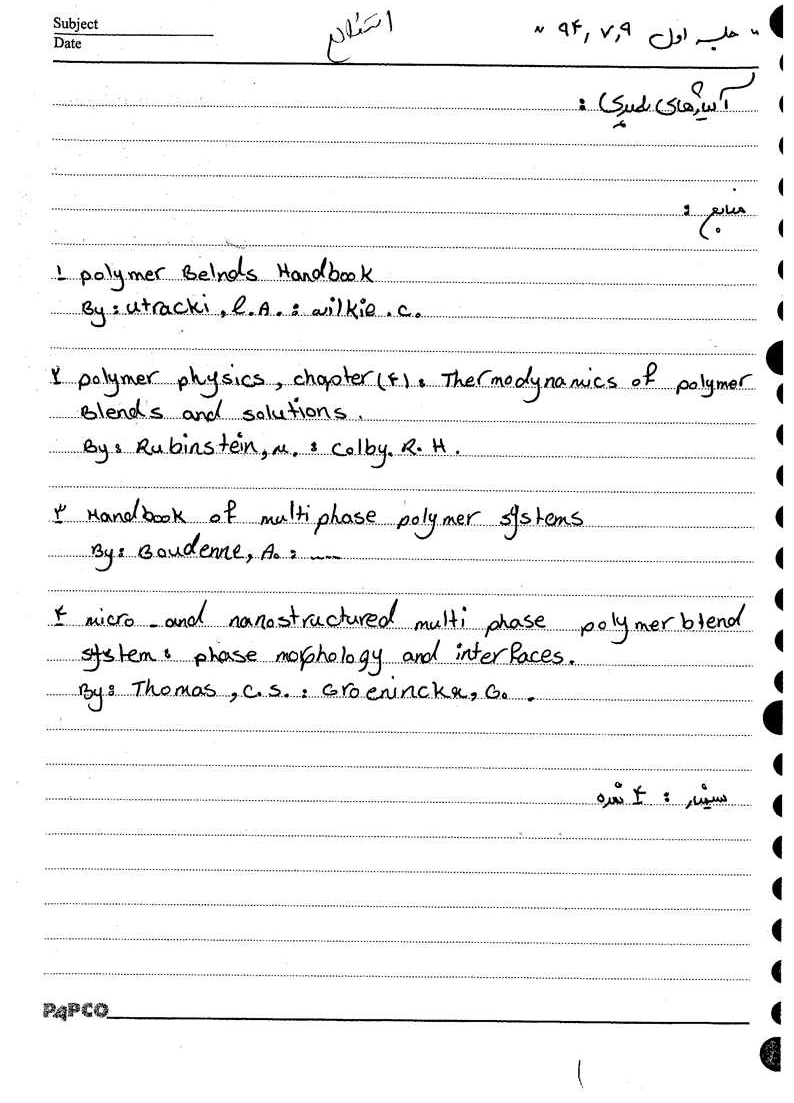 Subject
Date
" جلسه اول ۹۴,۷,۹ "
آلیاژهای پلیمری :
منابع :
۱ polymer Belnds Handbook
By : Utracki , l.A. : wilkie . C.
۲ polymer physics , chapter (۴) : Thermodynamics of polymer
Blends and solutions .
By : Rubinstein , M. : Colby. R. H .
۳ Handbook of multiphase polymer systems
By : Boudenne , A. : ----
۴ micro - and nanostructured multi phase polymer blend
system : phase morphology and interfaces .
By : Thomas , C. S. : Groeninckx , G. .
سمینار : ۴ نمره
PAPCO
۱